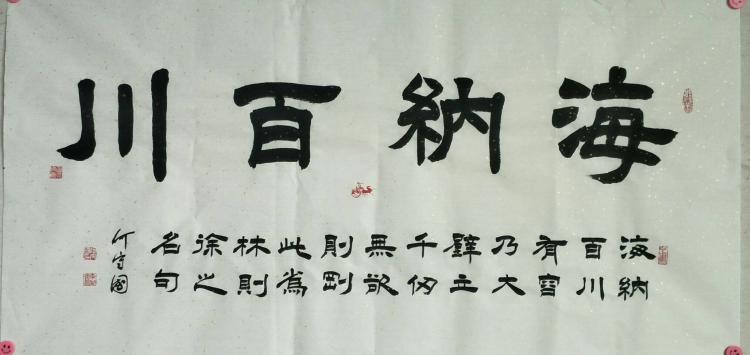 海納百川
海納
百川
有容
乃大
壁立
千仞
無欲
則剛
此爲
林則
徐之
名句
守國